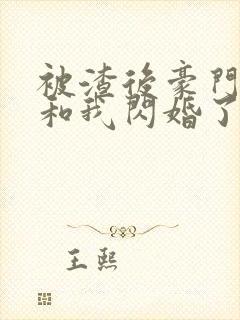 被渣後豪門
和我閃婚了
王熙